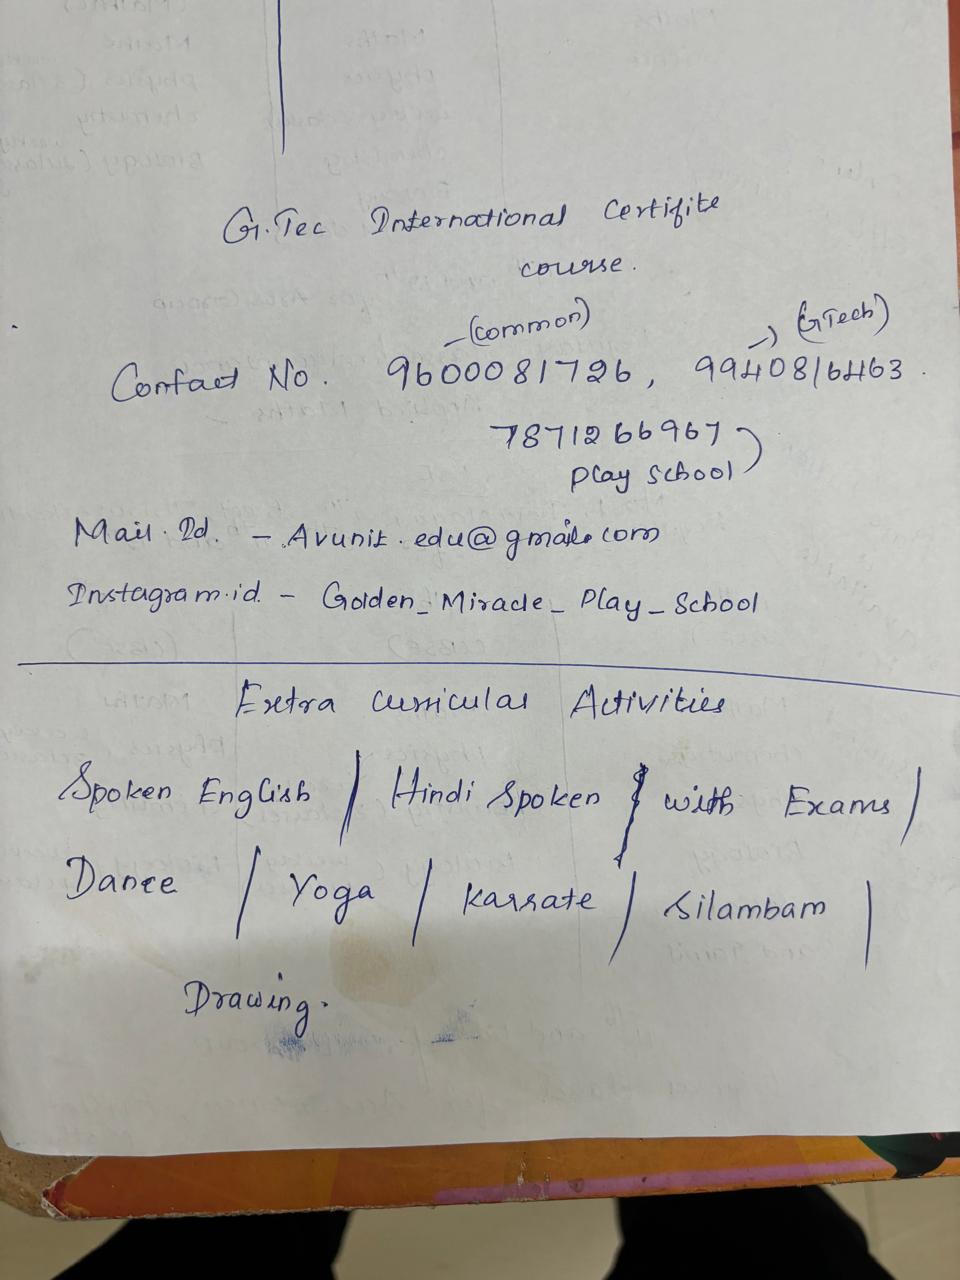 G.Tec International Certifite
course.
(common) (GTech)
Contact No. 9600081726, 9940816463.
7871266967
Play school
Mail.Id. - Avunit.edu@gmail.com
Instagram.id. - Golden_Miracle_Play_School
Extra curricular Activities
Spoken English / Hindi Spoken / with Exams /
Dance / Yoga / Karrate / Silambam /
Drawing.